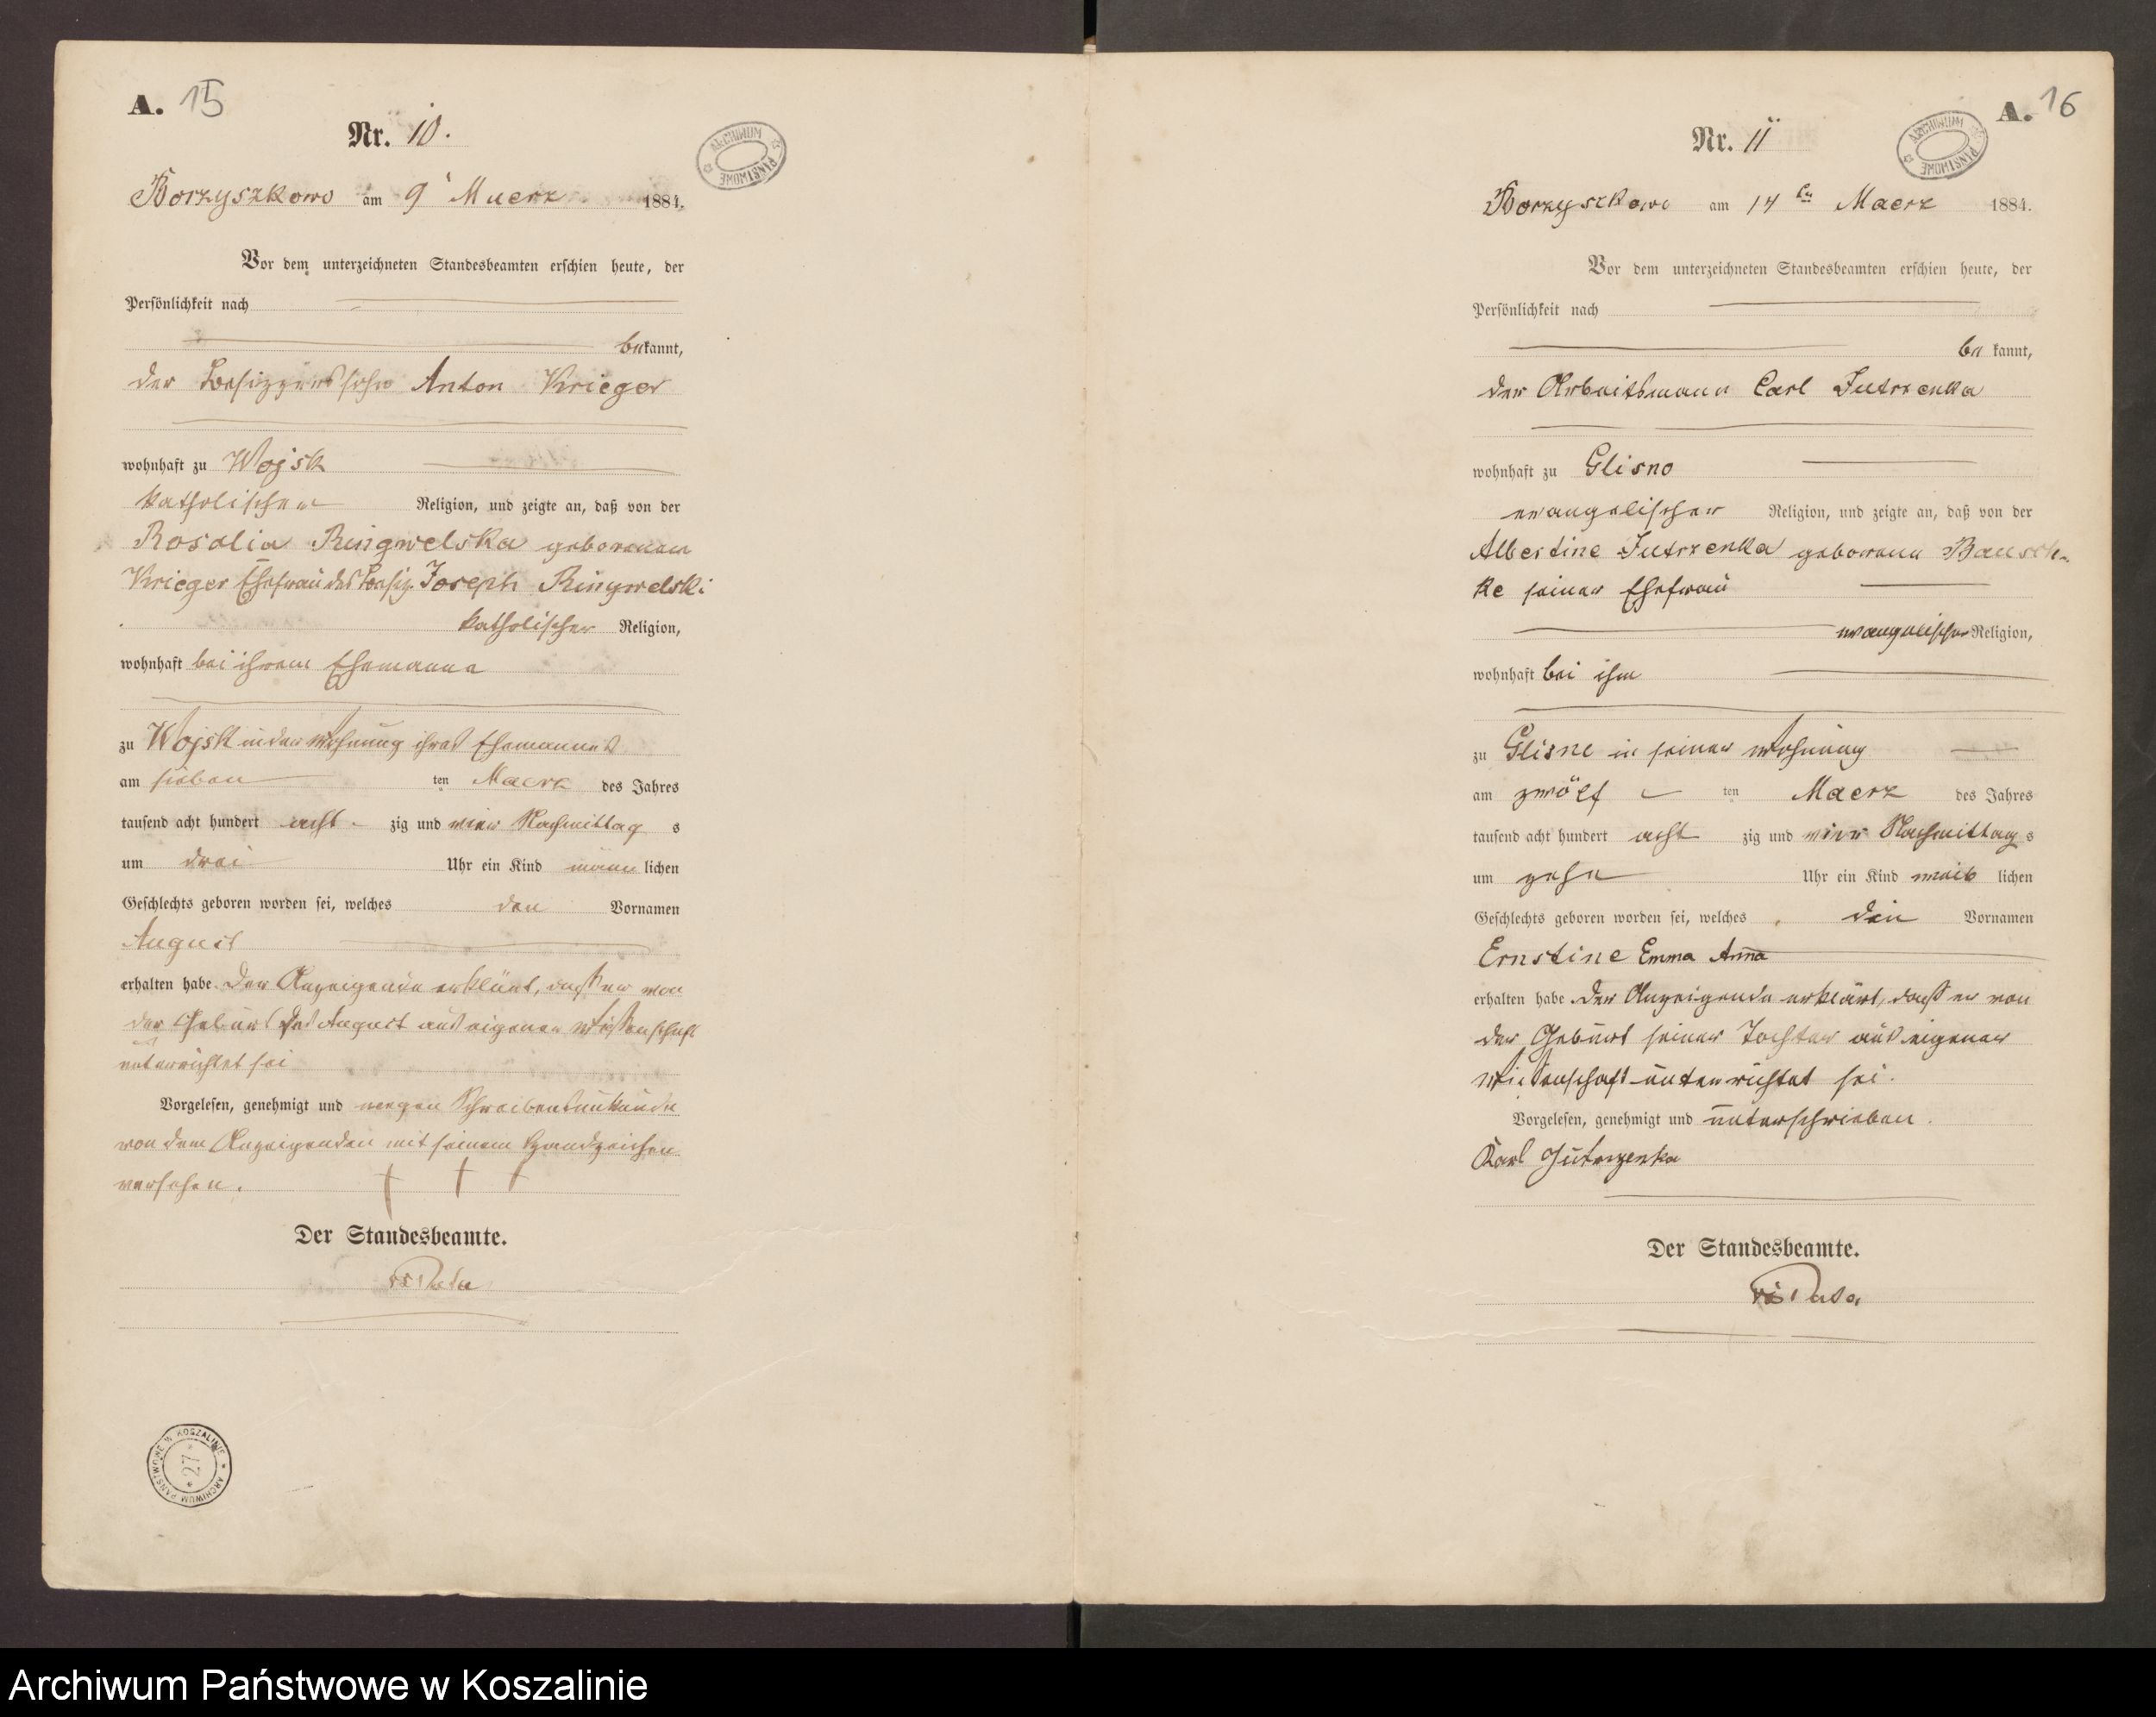 A. 15
Nr. 10.
ARCHIWUM PAŃSTWOWE
Borzyszkowo am 9 Maerz 1884.
Vor dem unterzeichneten Standesbeamten erschien heute, der
Persönlichkeit nach
bekannt,
der Besitzerssohn Anton Krieger
wohnhaft zu Wojsk
katholischer Religion, und zeigte an, daß von der
Rosalia Ringwelska geborenen
Krieger Ehefrau des Besitz. Joseph Ringwelski
katholischer Religion,
wohnhaft bei ihrem Ehemanne
zu Wojsk in der Wohnung ihres Ehemannes
am sieben ten Maerz des Jahres
tausend acht hundert acht zig und vier Nachmittag s
um drei Uhr ein Kind männ lichen
Geschlechts geboren worden sei, welches den Vornamen
August
erhalten habe. Der Anzeigende erklärt, daß er von
der Geburt des August aus eigener Wissenschaft
unterrichtet sei
Vorgelesen, genehmigt und wegen Schreibensunkunde
von dem Anzeigenden mit seinem Handzeichen
versehen. † † †
Der Standesbeamte.
ARCHIWUM PAŃSTWOWE W KOSZALINIE * 27 *
A. 16
Nr. 11
ARCHIWUM PAŃSTWOWE
Borzyszkowo am 14 ten Maerz 1884.
Vor dem unterzeichneten Standesbeamten erschien heute, der
Persönlichkeit nach
be kannt,
der Arbeitsmann Carl Jutrzenka
wohnhaft zu Glisno
evangelischer Religion, und zeigte an, daß von der
Albertine Jutrzenka geborene Bausch-
ke seiner Ehefrau
evangelischer Religion,
wohnhaft bei ihm
zu Glisne in seiner Wohnung
am zwölf ten Maerz des Jahres
tausend acht hundert acht zig und vier Nachmittag s
um zehn Uhr ein Kind weib lichen
Geschlechts geboren worden sei, welches die Vornamen
Ernstine Emma Anna
erhalten habe. Der Anzeigende erklärt, daß er von
der Geburt seiner Tochter aus eigener
Wissenschaft unterrichtet sei.
Vorgelesen, genehmigt und unterschrieben.
Karl Jutrzenka
Der Standesbeamte.
Archiwum Państwowe w Koszalinie